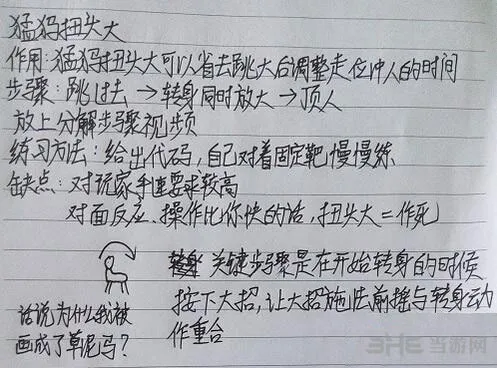 猛犸扭头大
作用:猛犸扭头大可以省去跳大后调整走位冲人的时间
步骤:跳过去→转身同时放大→顶人
放上分解步骤视频
练习方法:给出代码,自己对着固定靶慢慢练
缺点:对玩家手速要求较高
对面反应、操作比你快的话,扭头大=作死
关键步骤是在开始转身的时候
按下大招,让大招施法前摇与转身动
作重合
话说为什么我被
画成了草泥马?
3HE 当游网